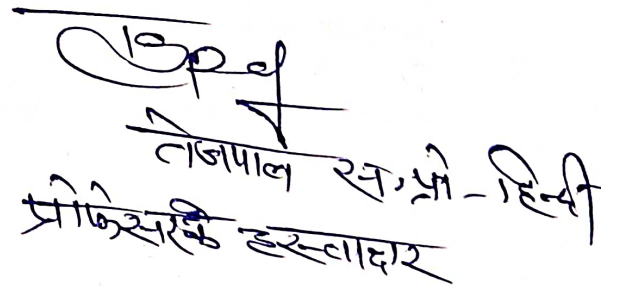 तेजपाल स. प्रो - हिन्दी
प्रोफेसरके हस्ताक्षर